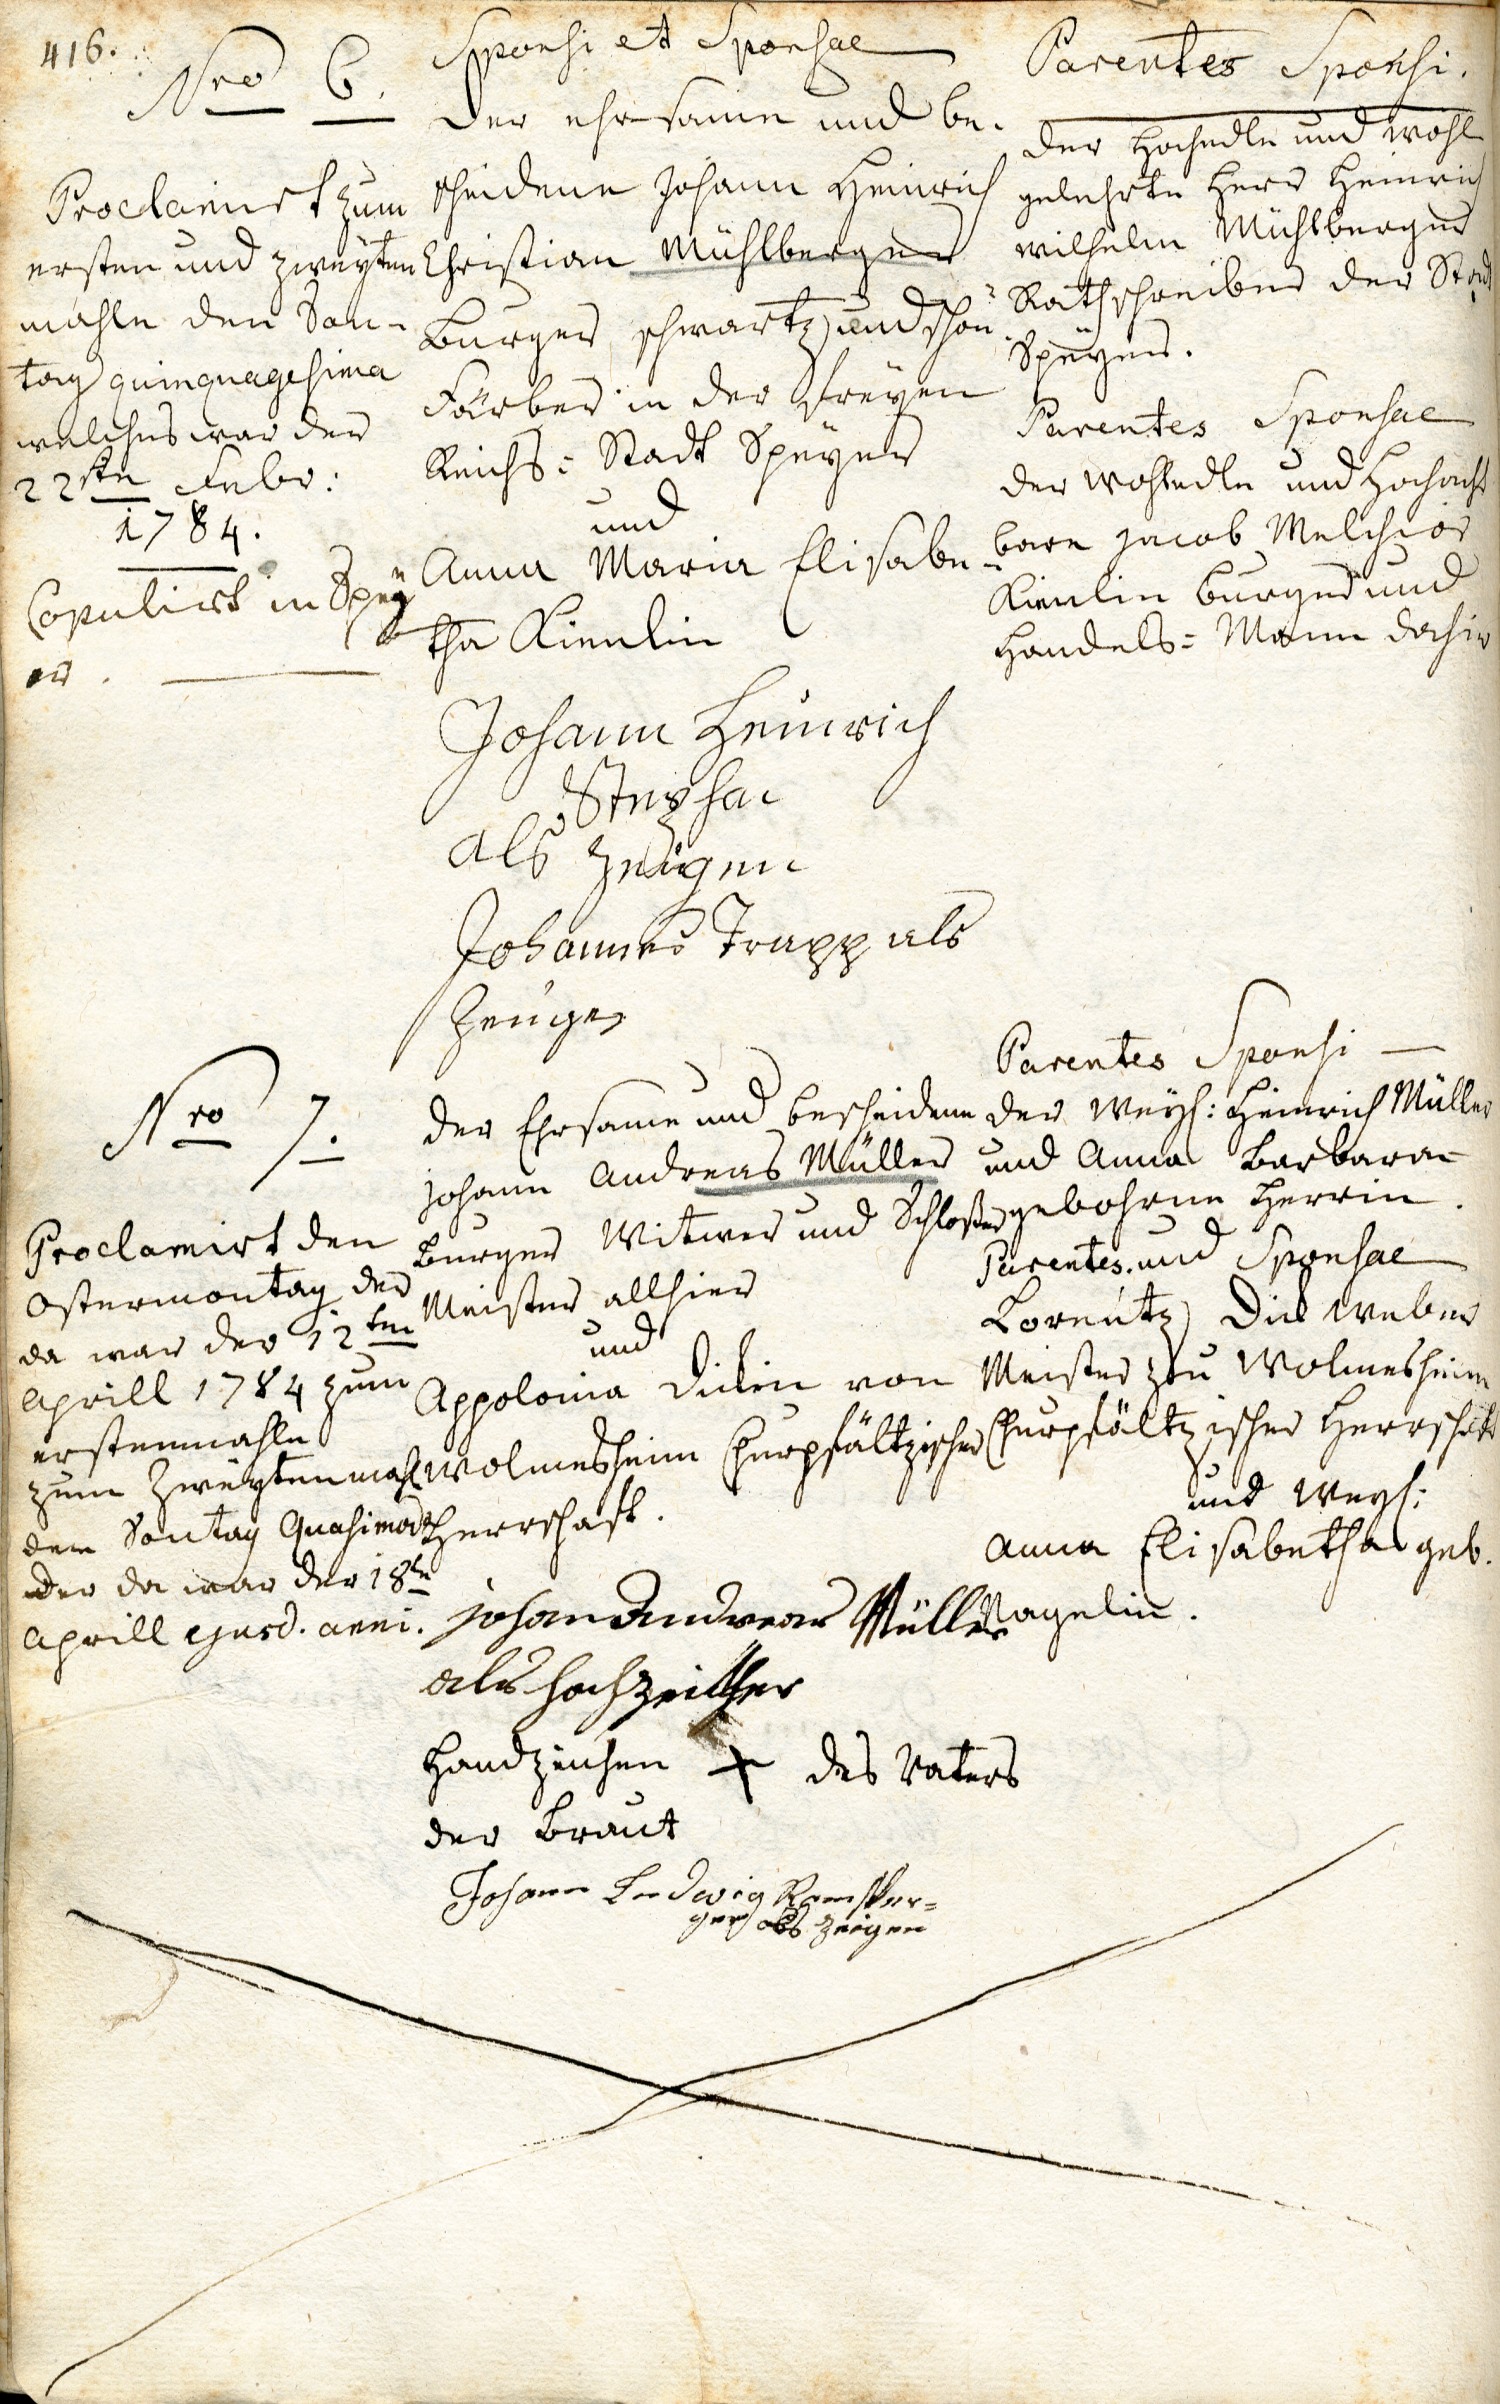 416.
Nro 6.
Proclamirt zum
ersten und zweyten
mahle den Son-
tag quinquagesima
welches war der
22ste Febr:
1784.
Copulirt in Spey
er.
Sponsi et Sponsae
Der ehrsame und be-
scheidene Johann Heinrich
Christian Mühlberger
Burger schwartz und schön
Färber in der freyen
Reichs= Stadt Speyer
und
Anna Maria Elisabe-
tha Kienlin
Johann Heinrich
Stephan
als Zeugen
Johannes Trapp als
Zeuge
Parentes Sponsi.
Der Hochedle und wohl
gelehrte Herr Heinrich
Wilhelm Mühlberger
Rathschreiber der Stadt
Speyer.
Parentes Sponsae
Der Wohledle und Hochacht
bare Jacob Melchior
Kienlin Burger und
Handels= Mann dahier
Nro 7.
Proclamirt den
Ostermontag der
da war der 12ten
Aprill 1784 zum
erstenmahle
zum Zweytenmahl
den Sontag Quasimodo
der da war der 18te
Aprill ejusd. anni.
Der Ehrsame und bescheidene
Johann Andreas Müller
Burger Witwer und Schlosser
Meister allhier
und
Appolonia Dielin von
Wolmesheim Churpfältzischer
Herrschaft.
Johan Andreas Müller
als hochzeither
Handzeichen + des Vaters
der Braut
Johann Ludwig Ramsper=
ger als zeigen
Parentes Sponsi
Der Weyl: Heinrich Müller
und Anna Barbara
gebohrne Herrin.
Parentes und Sponsae
Lorentz Diel Weber
Meister zu Wolmesheim
Churpfältzischer Herrschaft
und Weyl:
Anna Elisabetha geb.
Nagelin.